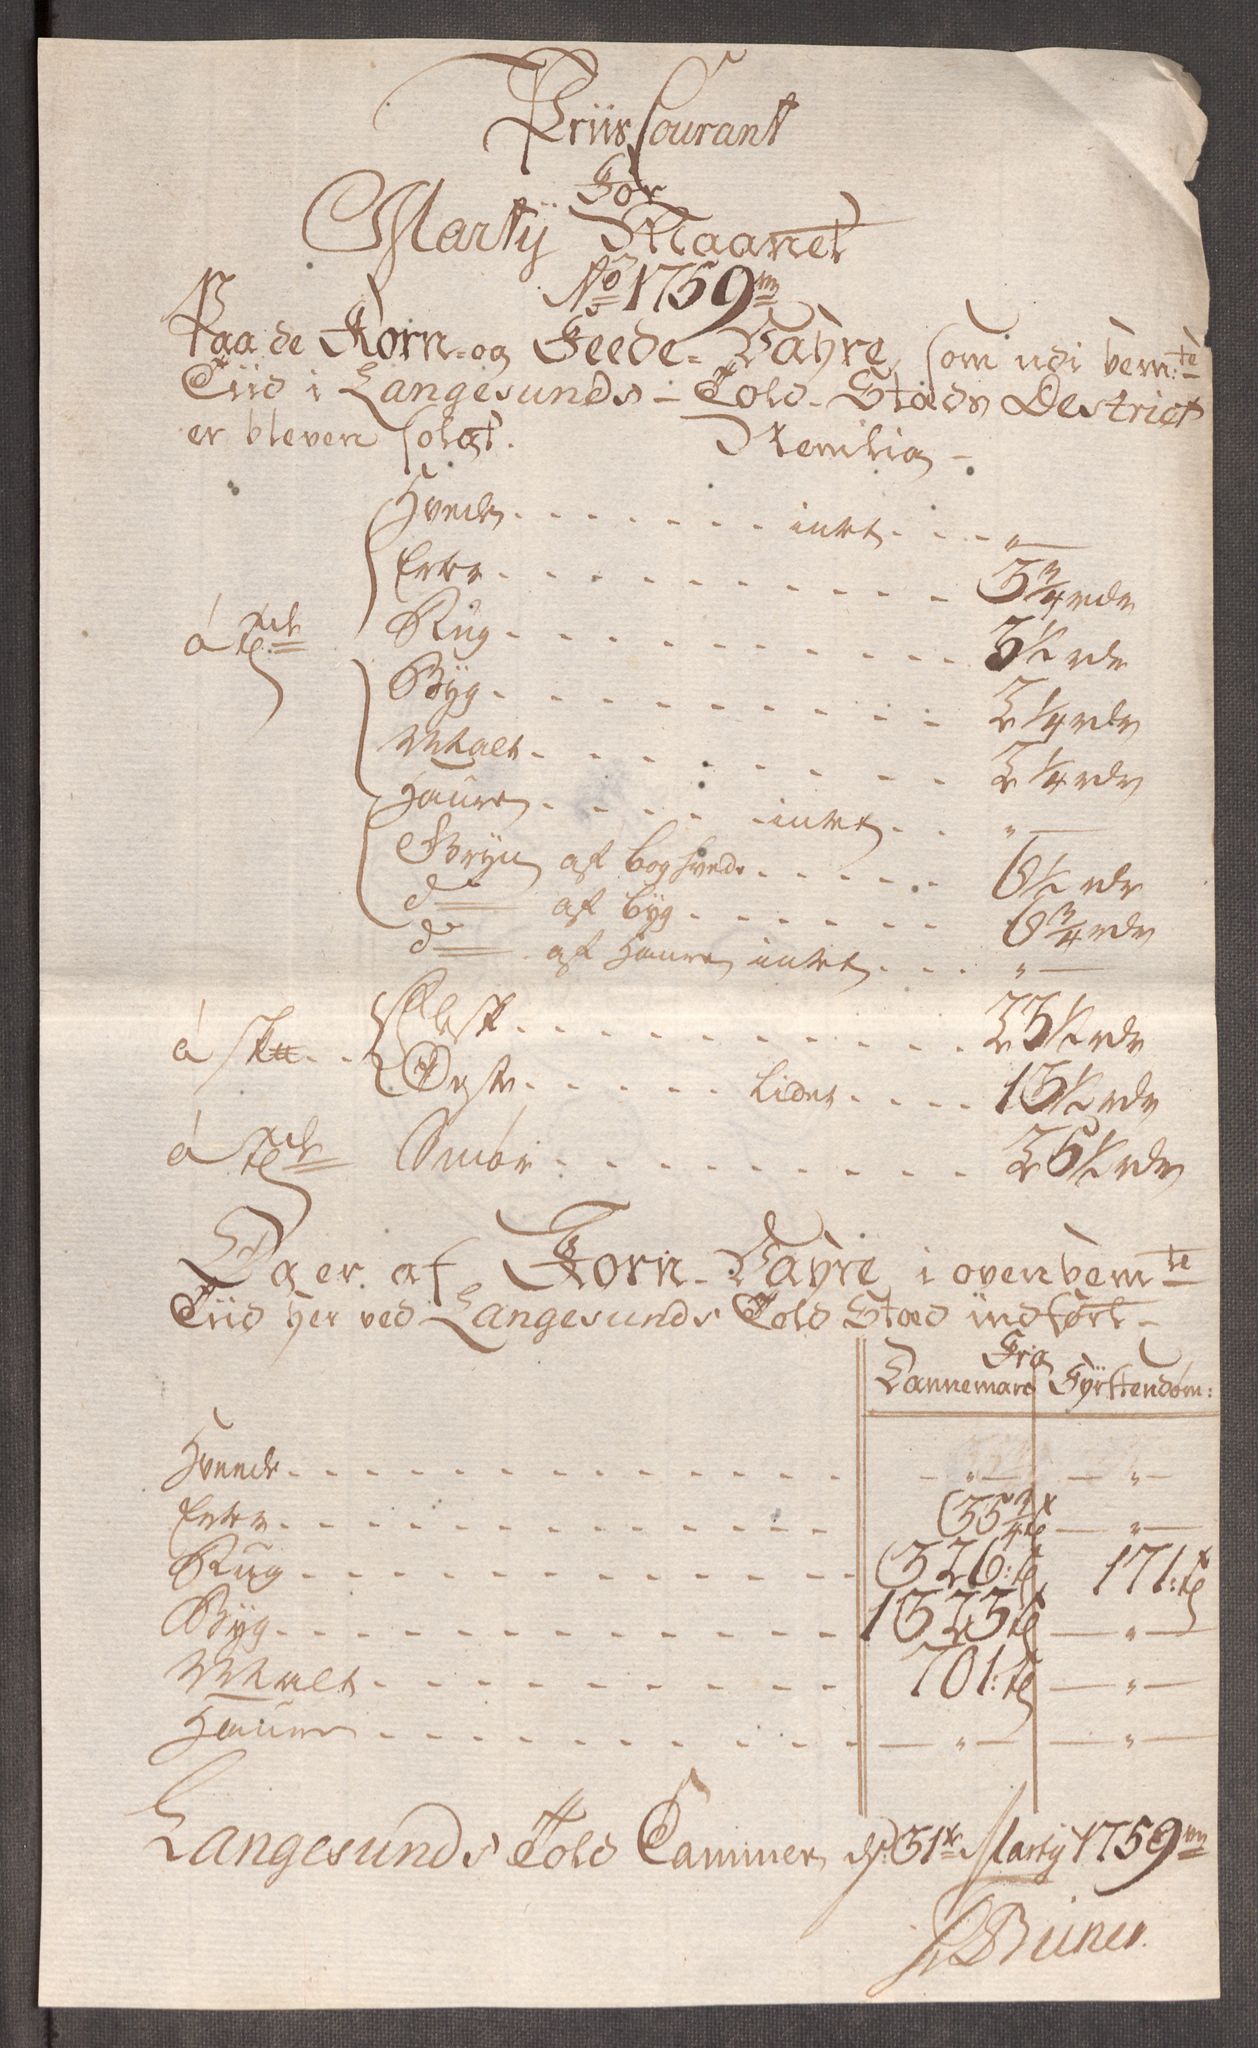 Priis Courant
For
Martÿ Maanet
No 1759.
Paa de Korn- og Feede- Vahre, som udi bem:te
Tiid i Langesunds Told-Stæds Destrict
er bleven solgt. Nemlig
Hvede intet
Erter 3 3/4 rdr
à Td: Rug 3 1/2 rdr
Byg 2 1/4 rdr
Malt 2 1/4 rdr
Haure intet
Gryn af boghvede 6 1/2 rdr
d: af byg 6 3/4 rdr
d: af Haure intet
à Sk lb Flesk 23 1/2 rdr
Oxste lidet 13 1/2 rdr
à Td: Smør 26 1/2 rdr
Og er af Korn-Vahre i ovenbem:te
Tiid her ved Langesunds Told Stæd indført
Fra
Dannemarc Fyrstendøm:
Hveede
Erter 35 3/4 td
Rug 326: td 171: td
Byg 1323 td
Malt 701: td
Haure
Langesunds Told Cammer, d: 31te Martÿ 1759.